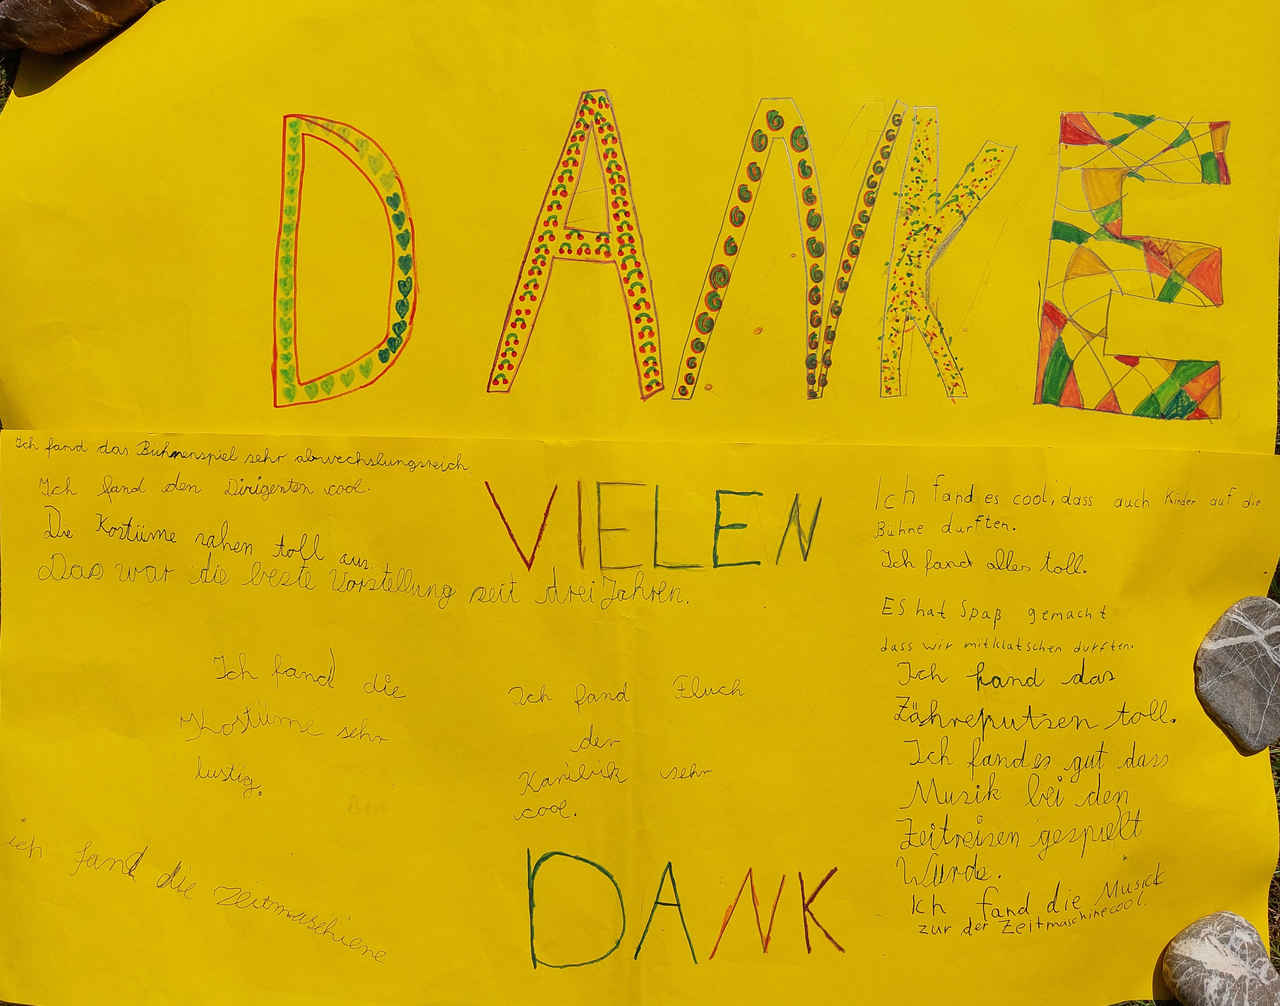 DANKE
Ich fand das Buhnenspiel sehr abwechslungsreich
Ich fand den Dirigenten cool.
Die Kostüme sahen toll aus.
Das war die beste Vorstellung seit drei Jahren.
VIELEN
Ich fand es cool, dass auch Kinder auf die
Bühne durften.
Ich fand alles toll.
ES hat Spaß gemacht
dass wir mitklatschen durften.
Ich fand das
Zähneputzen toll.
Ich fand es gut dass
Musik bei den
Zeitreisen gespielt
Wurde.
Ich fand die Musick
zur der Zeitmaschine cool.
Ich fand die
Kostüme sehr
lustig.
Ich fand Fluch
der
sehr
cool.
ich fand die Zeitmaschiene
DANK